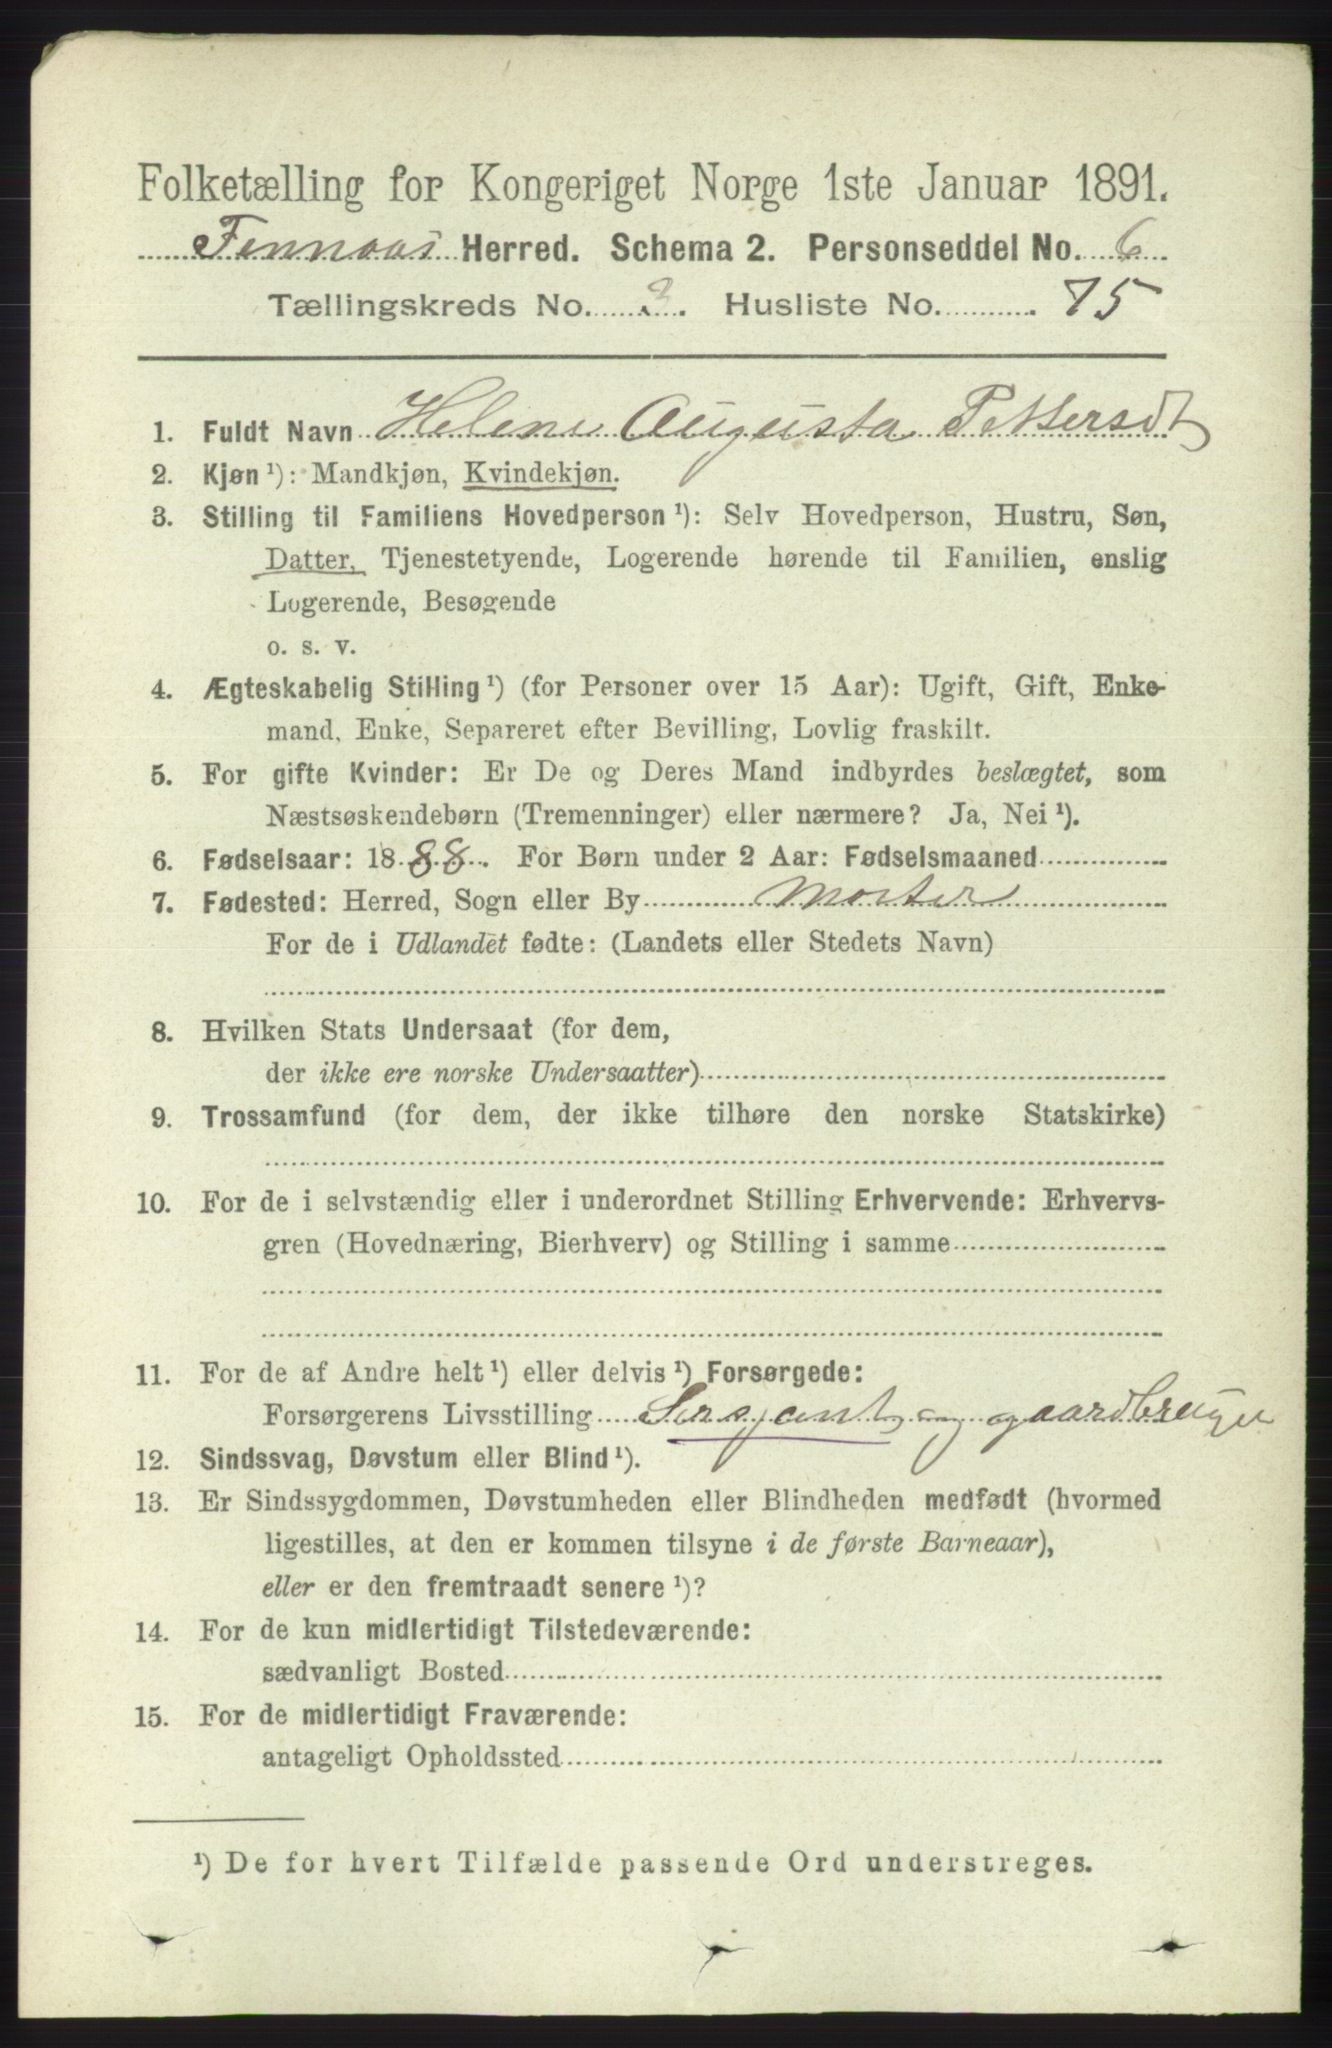 Folketælling for Kongeriget Norge 1ste Januar 1891.
Finnaas Herred. Schema 2. Personseddel No. 6
Tællingskreds No. 3. Husliste No. 75
1. Fuldt Navn Helene Augusta Pettersdt
2. Kjøn ¹): Mandkjøn, Kvindekjøn.
3. Stilling til Familiens Hovedperson ¹): Selv Hovedperson, Hustru, Søn,
Datter, Tjenestetyende, Logerende hørende til Familien, enslig
Logerende, Besøgende
o. s. v.
4. Ægteskabelig Stilling ¹) (for Personer over 15 Aar): Ugift, Gift, Enke-
mand, Enke, Separeret efter Bevilling, Lovlig fraskilt.
5. For gifte Kvinder: Er De og Deres Mand indbyrdes beslægtet, som
Næstsøskendebørn (Tremenninger) eller nærmere? Ja, Nei ¹).
6. Fødselsaar: 1888. For Børn under 2 Aar: Fødselsmaaned
7. Fødested: Herred, Sogn eller By Moster
For de i Udlandet fødte: (Landets eller Stedets Navn)
8. Hvilken Stats Undersaat (for dem,
der ikke ere norske Undersaatter)
9. Trossamfund (for dem, der ikke tilhøre den norske Statskirke)
10. For de i selvstændig eller i underordnet Stilling Erhvervende: Erhvervs-
gren (Hovednæring, Bierhverv) og Stilling i samme
11. For de af Andre helt ¹) eller delvis ¹) Forsørgede:
Forsørgerens Livsstilling Sersjant og gaardbruger
12. Sindssvag, Døvstum eller Blind ¹).
13. Er Sindssygdommen, Døvstumheden eller Blindheden medfødt (hvormed
ligestilles, at den er kommen tilsyne i de første Barneaar),
eller er den fremtraadt senere ¹)?
14. For de kun midlertidigt Tilstedeværende:
sædvanligt Bosted
15. For de midlertidigt Fraværende:
antageligt Opholdssted
¹) De for hvert Tilfælde passende Ord understreges.